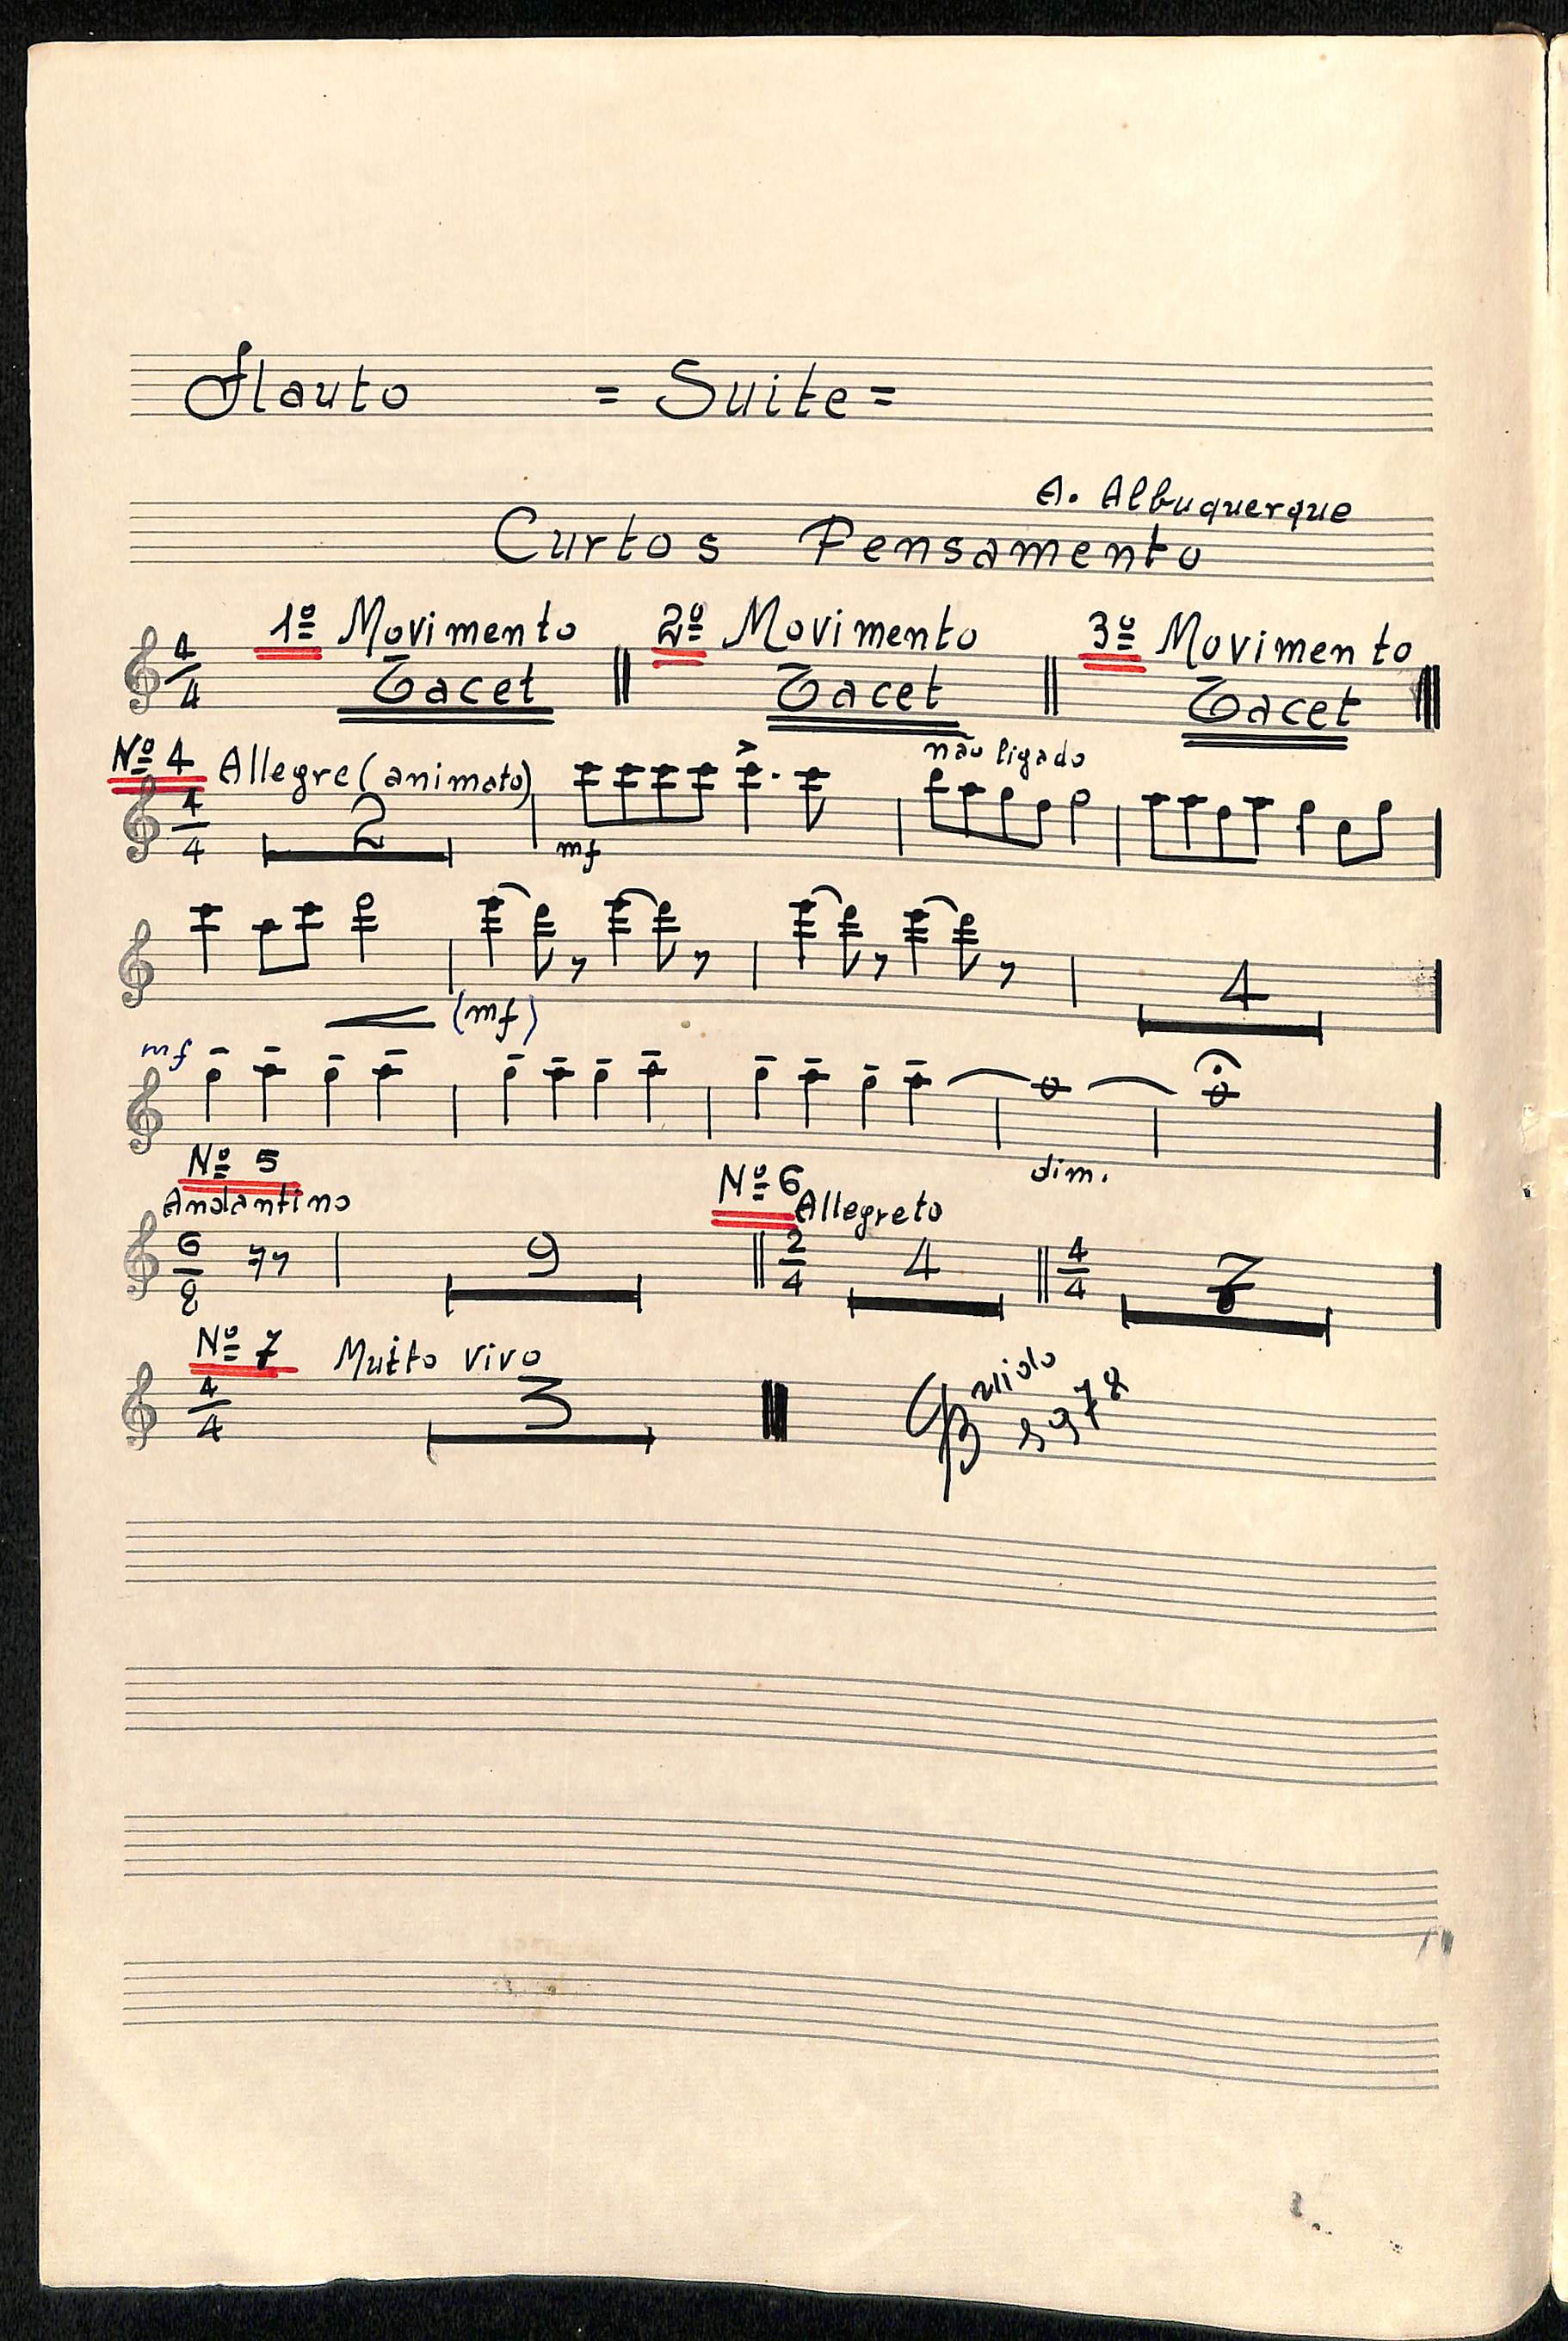 Flauto = Suite =
A. Albuquerque
Curtos Pensamento
1º Movimento 2º Movimento 3º Movimento
4/4 Tacet Tacet Tacet
Nº 4 Allegre (animato) não ligado
4/4 2
mf
4
(mf)
mf
dim.
Nº 5 Nº 6
Andantino Allegreto
6/8 9 2/4 4 4/4 7
Nº 7 Muito vivo
4/4 3